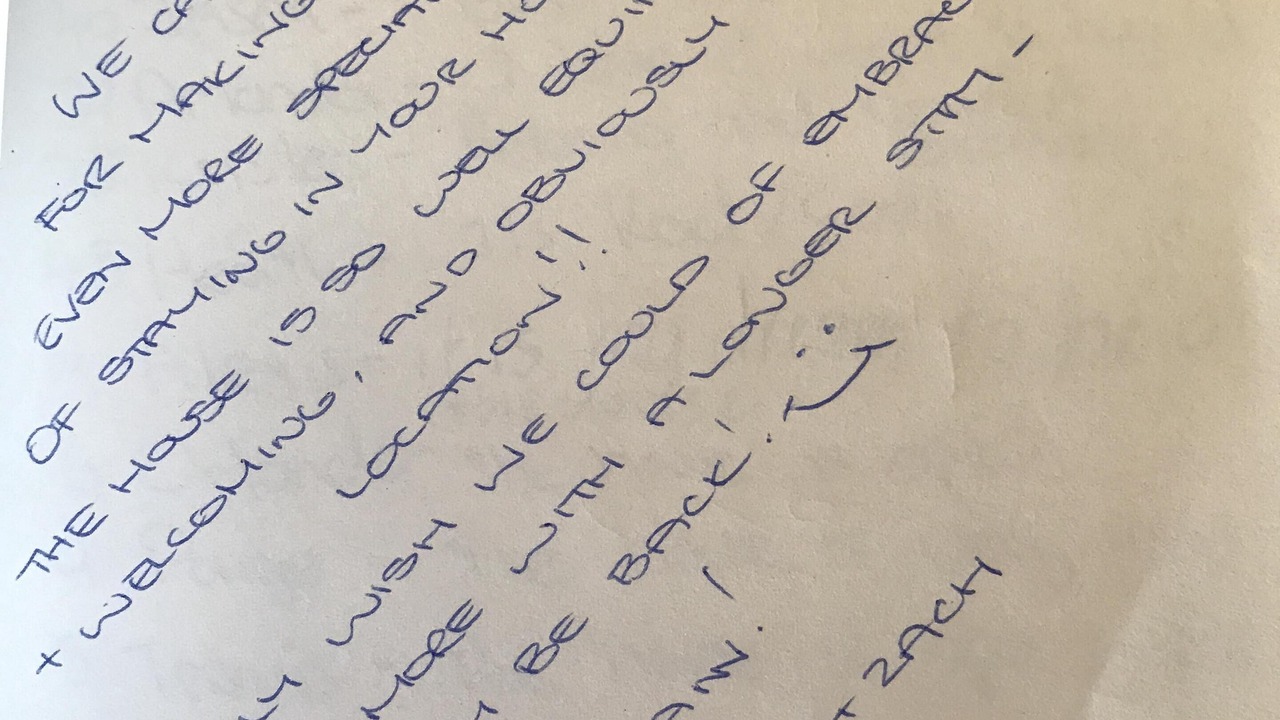 WE CA
FOR MAKING
EVEN MORE SPECIA
OF STAYING IN YOUR HO
THE HOUSE IS SO WELL EQUI
+ WELCOMING, AND OBVIOUSLY
LOCATION!!
LY WISH WE COULD OF EMBRAC
MORE WITH A LONGER STAY -
BE BACK! :)
+ ZACH